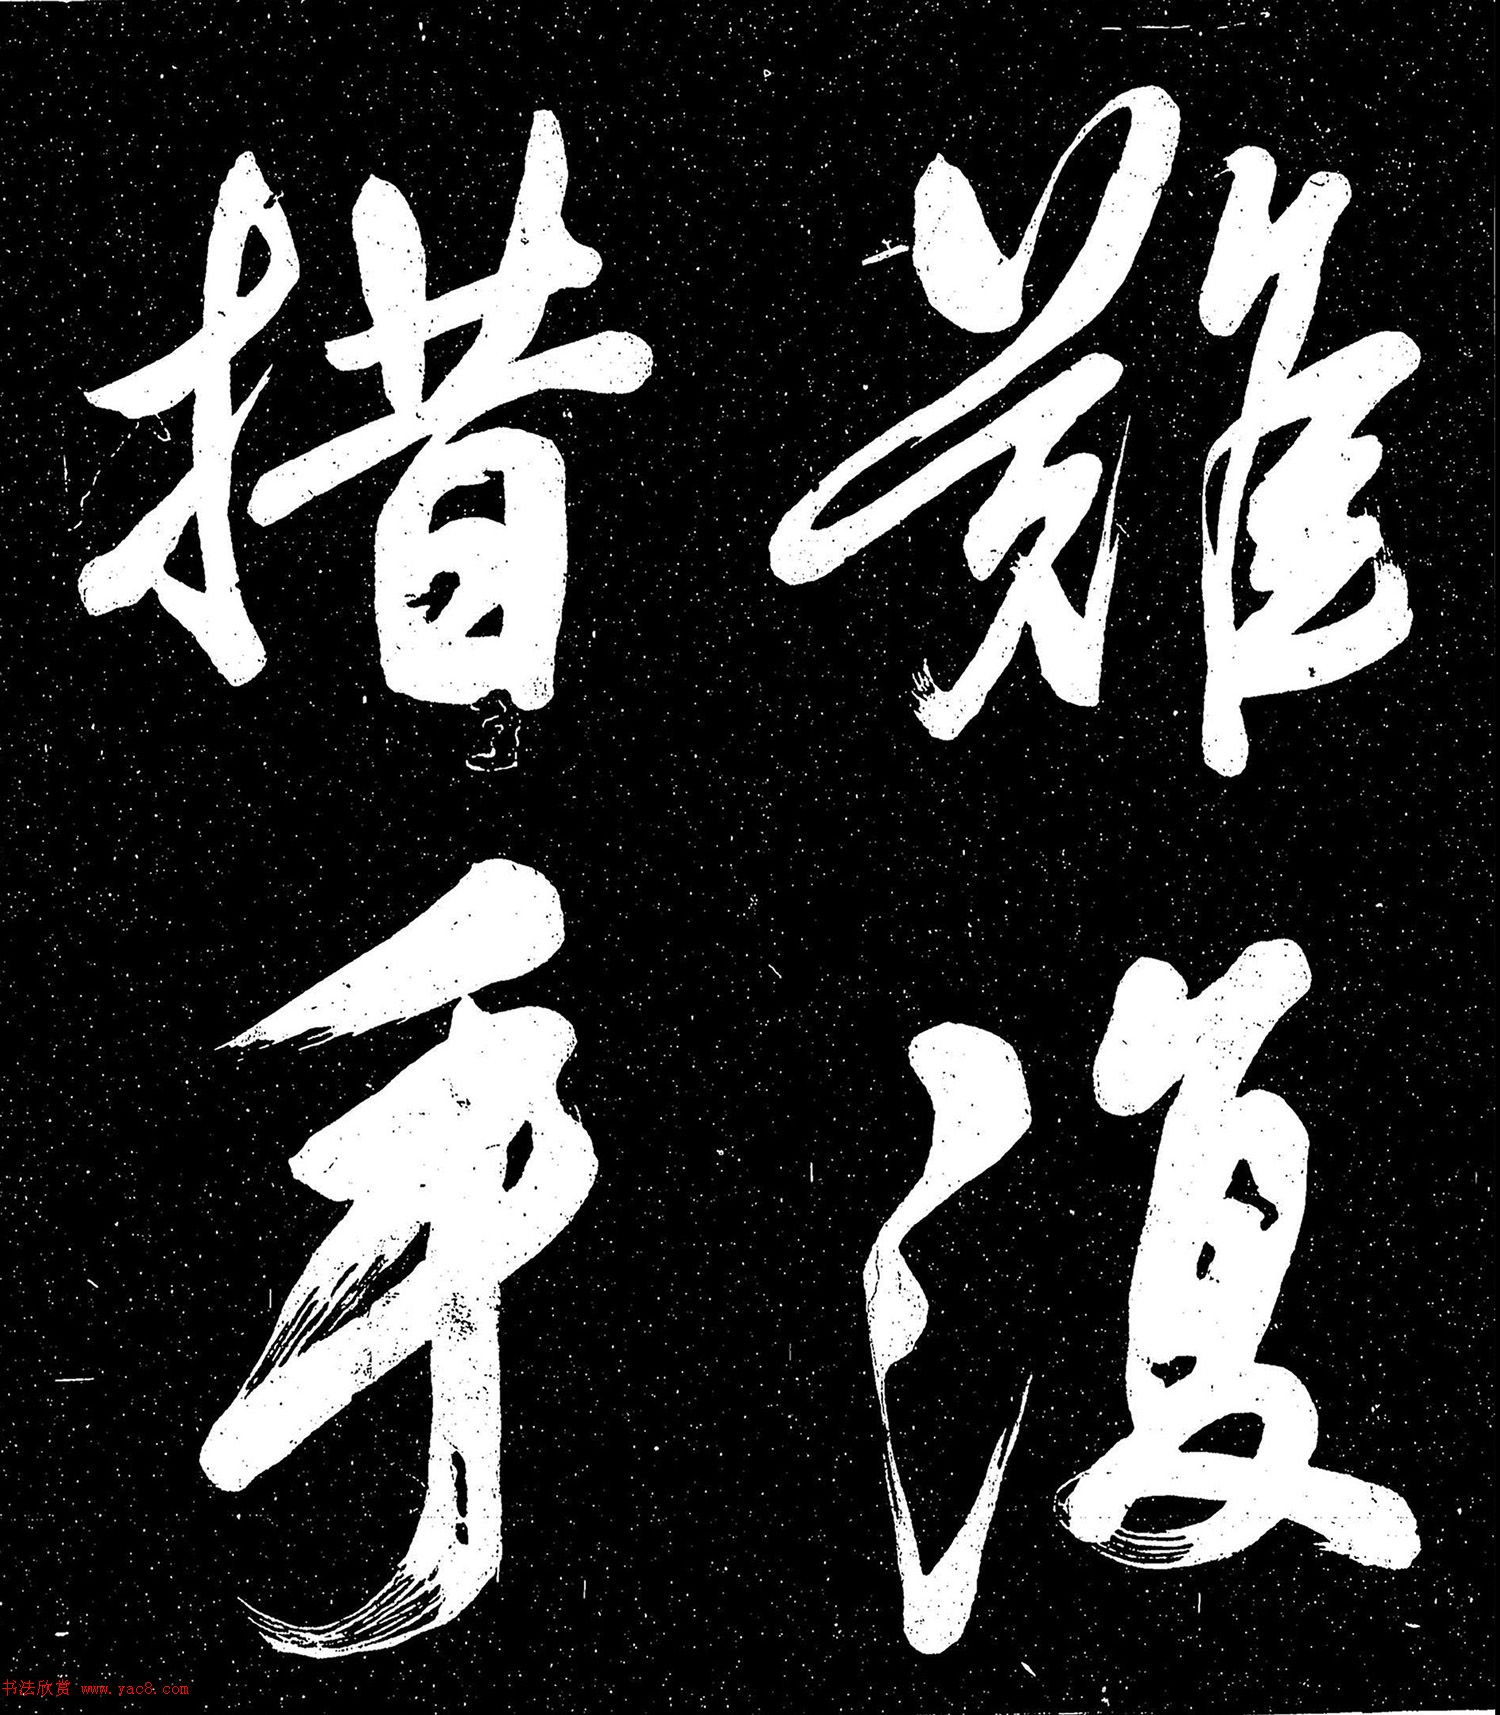 難復
措手
书法欣赏 www.yac8.com